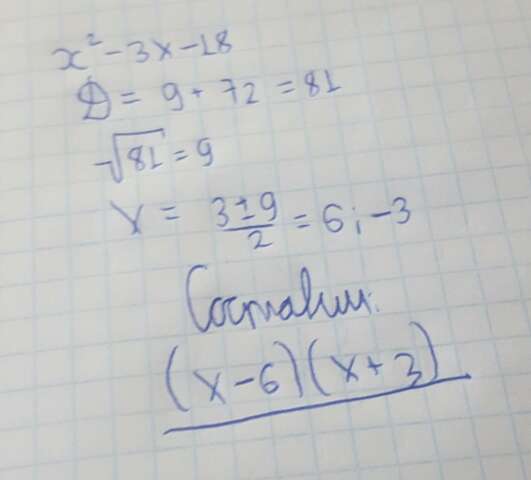 x² - 3x - 18
D = 9 + 72 = 81
√81 = 9
x = (3 ± 9)/2 = 6; -3
Составим:
(x - 6)(x + 3)